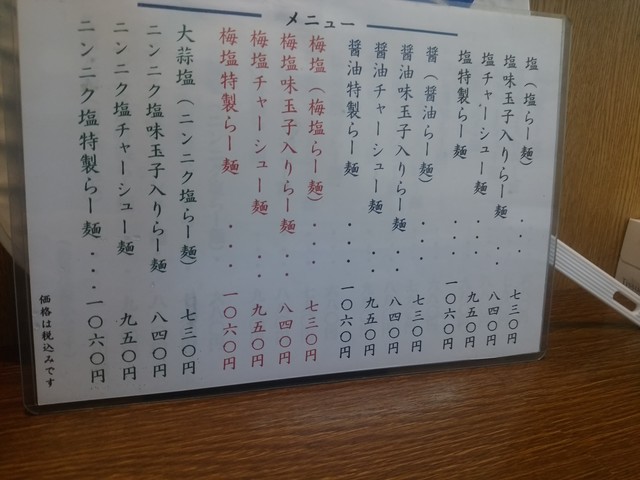 メニュー
塩（塩らー麺）．．．．七三〇円
塩味玉子入りらー麺．．八四〇円
塩チャーシュー麺．．．九五〇円
塩特製らー麺．．．一〇六〇円
醤（醤油らー麺）．．．七三〇円
醤油味玉子入りらー麺．．八四〇円
醤油チャーシュー麺．．九五〇円
醤油特製らー麺．．．一〇六〇円
梅塩（梅塩らー麺）．．．七三〇円
梅塩味玉子入りらー麺．．八四〇円
梅塩チャーシュー麺．．．九五〇円
梅塩特製らー麺．．．一〇六〇円
大蒜塩（ニンニク塩らー麺）七三〇円
ニンニク塩味玉子入りらー麺八四〇円
ニンニク塩チャーシュー麺九五〇円
ニンニク塩特製らー麺．．．一〇六〇円
価格は税込みです